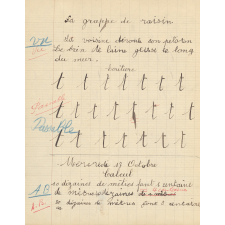 La grappe de raisin.
Vu
La voisine déroule son peloton
Le brin de laine glisse le long
du mur.
Écriture
t t t t t t t t
t t t t t t t
Passable
t t t t t t t
Mercredi 17 Octobre
Calcul
10 dizaines de mètres font 1 centaine
de mètres
10 dizaines de mètres font 1 centaine